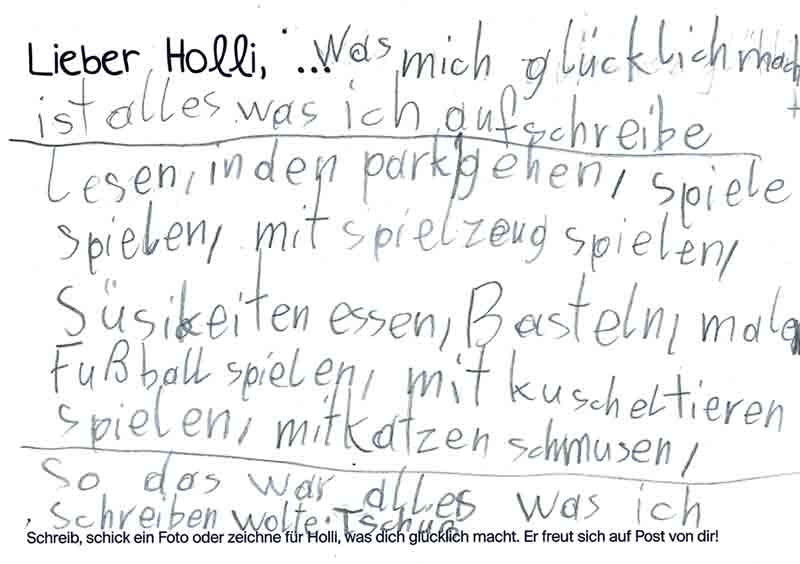 Lieber Holli, ... Was mich glücklich macht
ist alles was ich aufschreibe
Lesen, in den park gehen, spiele
spielen, mit spielzeug spielen,
Süsikeiten essen, Basteln, malen
Fußball spielen, mit kuscheltieren
spielen, mit katzen schmusen,
So das war alles was ich
schreiben wolte. Tschüs
Schreib, schick ein Foto oder zeichne für Holli, was dich glücklich macht. Er freut sich auf Post von dir!